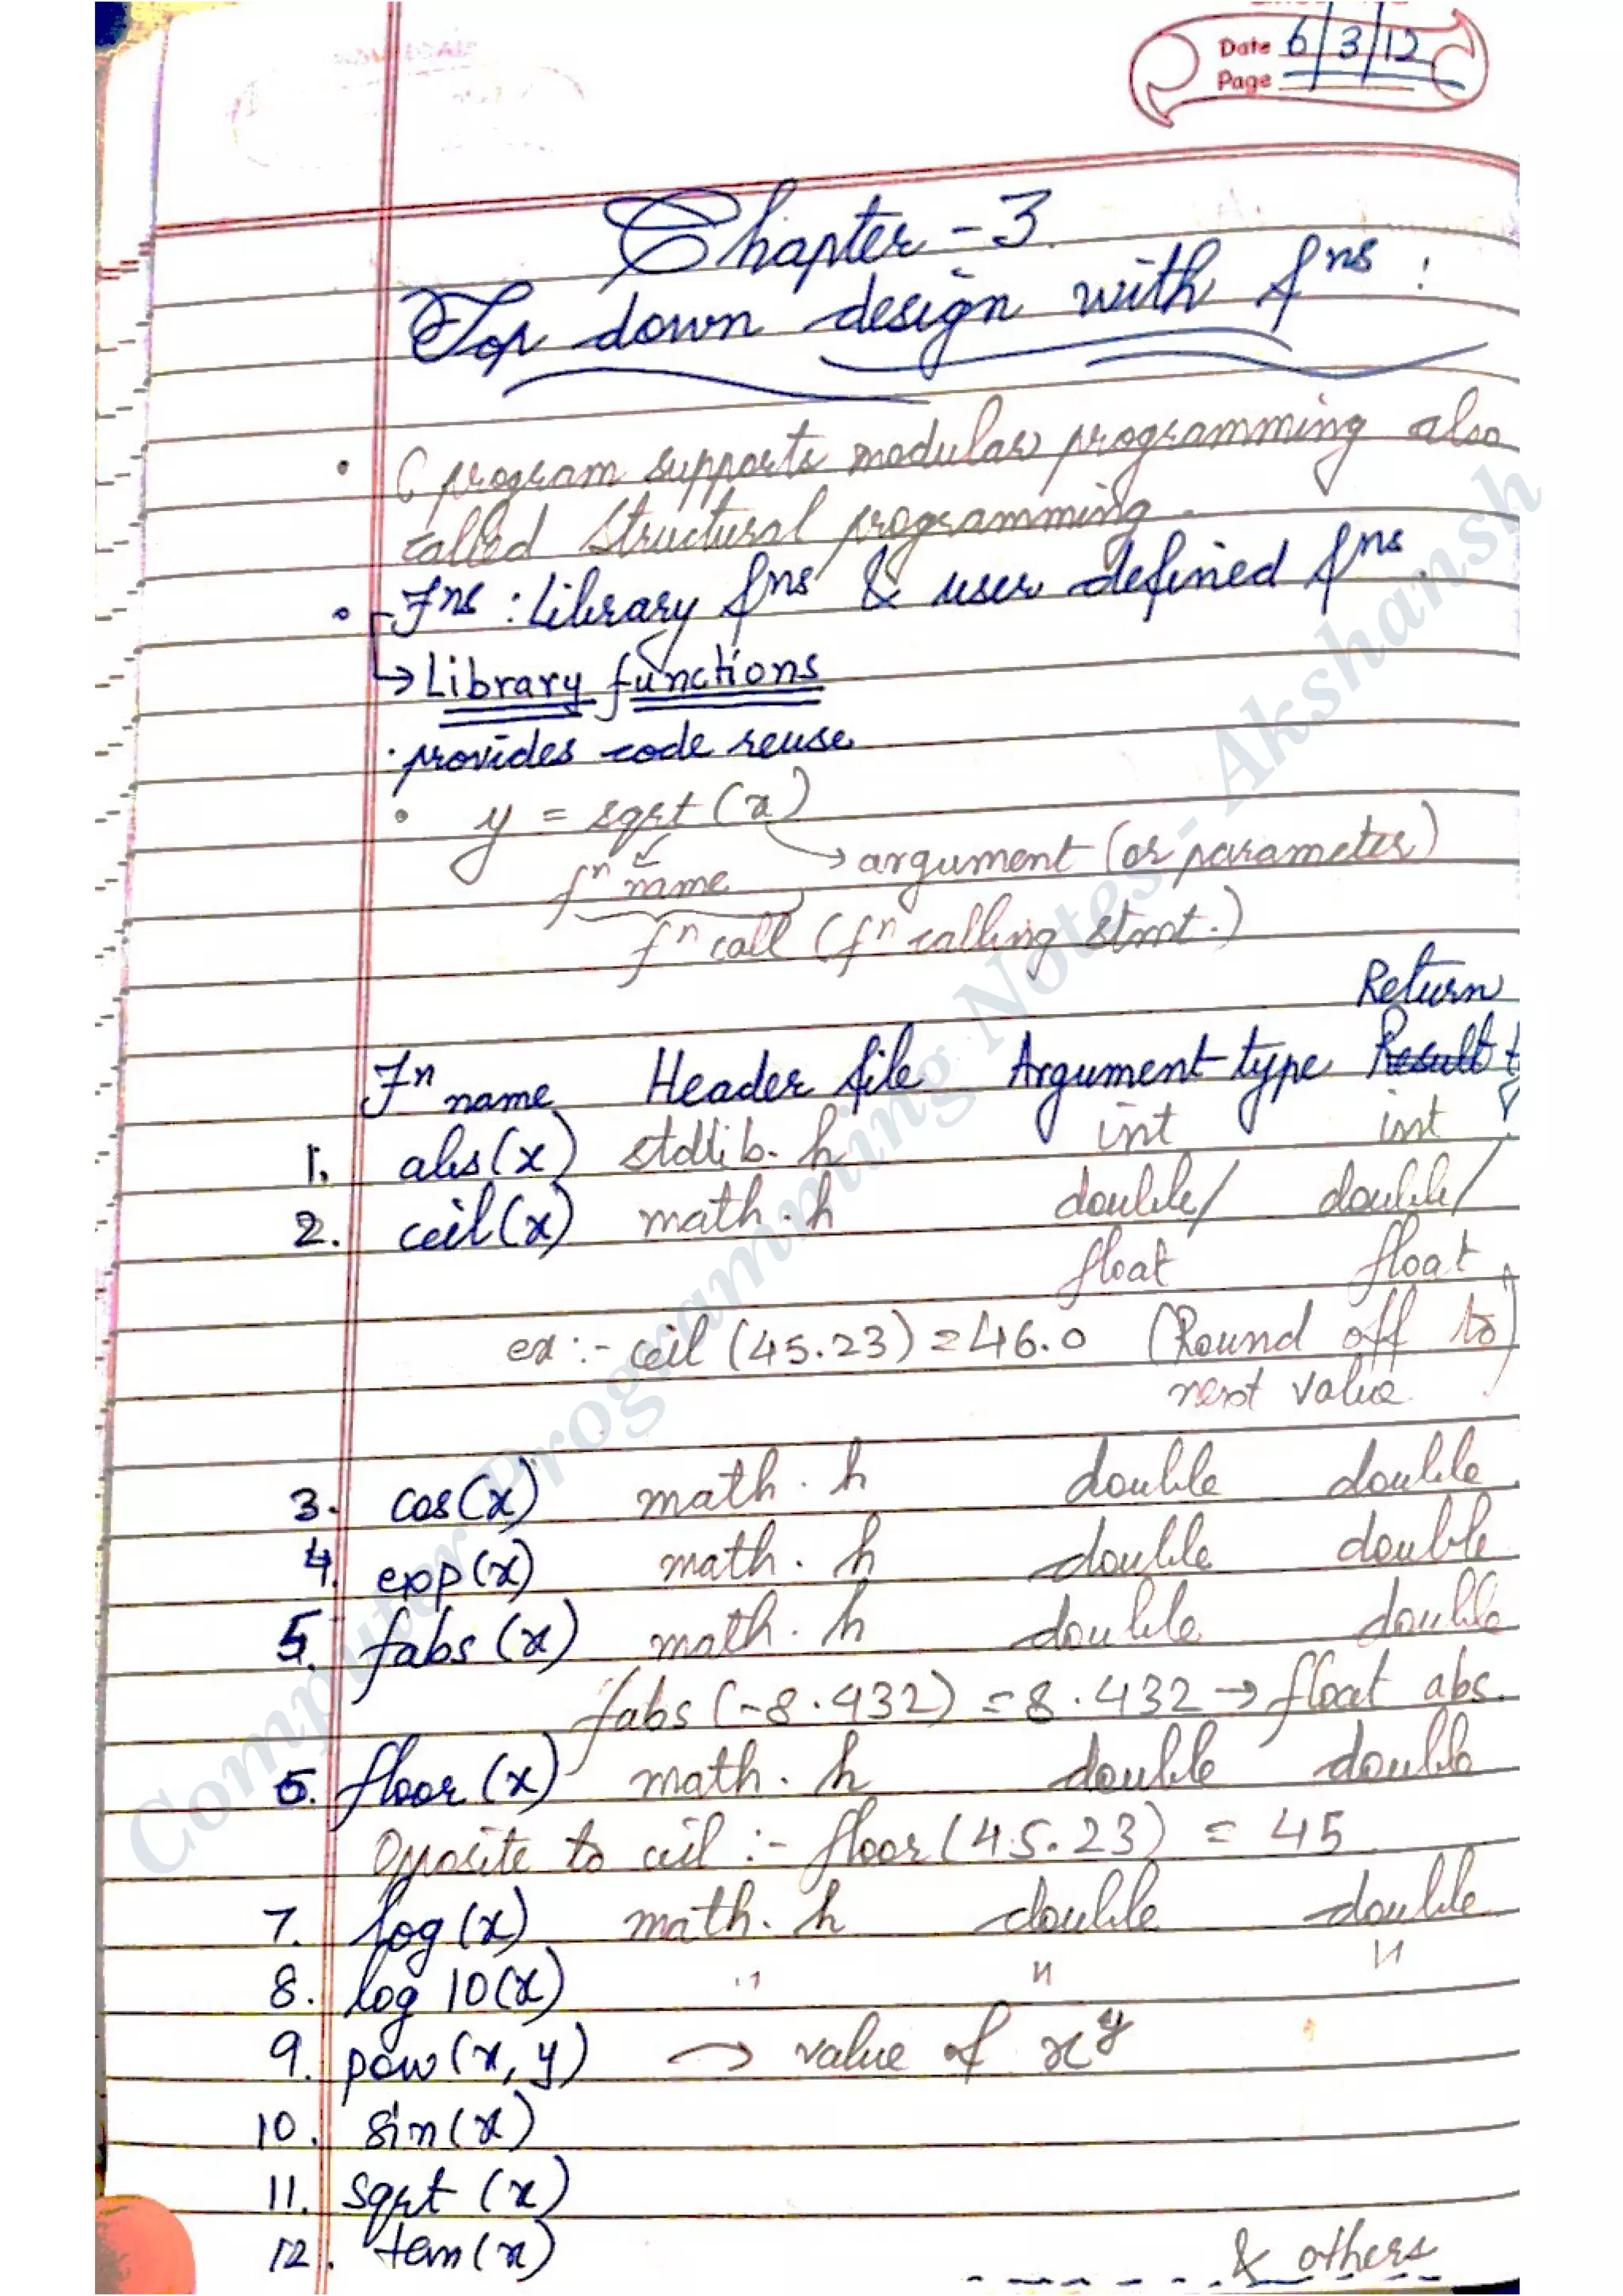 Date 6/3/12
Page
Chapter - 3.
Top down design with fns :
• C program supports modular programming also
called structural programming.
• Fns : Library fns & user defined fns
→ Library functions
· provides code reuse
• y = sqrt(x)
fn name → argument (or parameter)
fn call (fn calling stmt.)
Return
Fn name Header file Argument type Result t
1. abs(x) stdlib.h int int
2. ceil(x) math.h double/ double/
float float
ex :- ceil (45.23) = 46.0 (Round off to
next value)
3. cos(x) math.h double double
4. exp(x) math.h double double
5. fabs(x) math.h double double
fabs(-8.432) = 8.432 → float abs.
6. floor(x) math.h double double
Opposite to ceil :- floor(45.23) = 45
7. log(x) math.h double double
8. log 10(x) " " "
9. pow(x, y) → value of xy
10. sin(x)
11. sqrt (x)
12. tan(x) & others
Computer Programming Notes - Akshansh